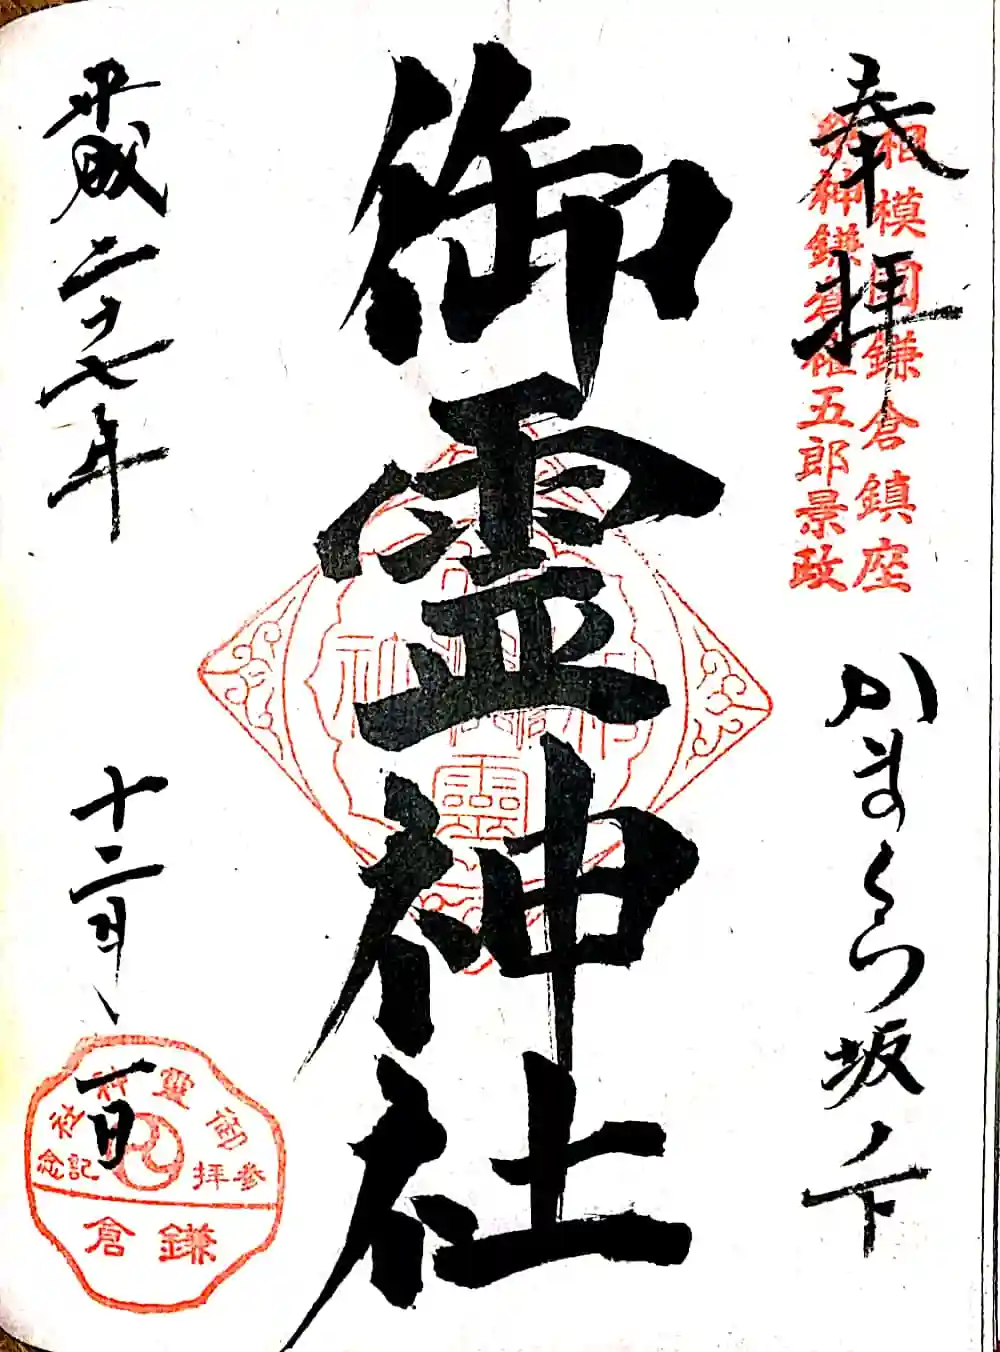 奉拝
相模國鎌倉鎮座
祭神鎌倉権五郎景政
かまくら坂ノ下
御霊神社
平成二十七年
十二月一日
御靈神社
参拝記念
鎌倉